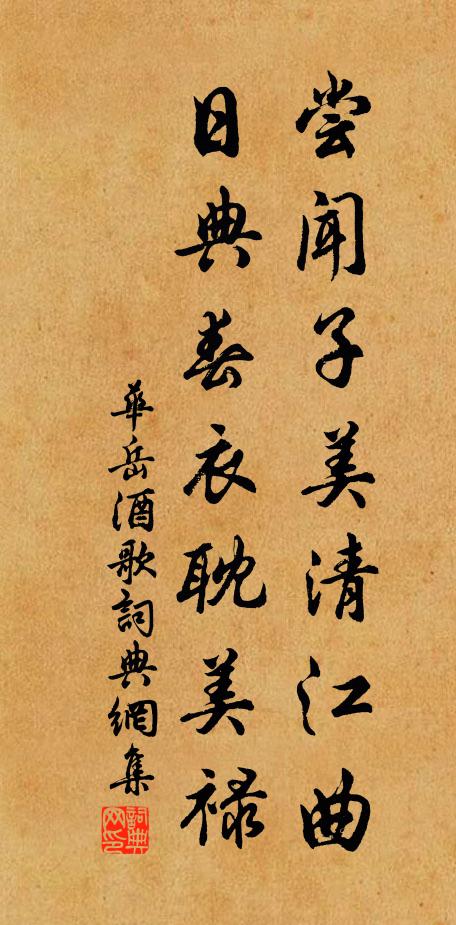 尝闻子美清江曲
日典春衣耽美禄
華岳酒歌詞典網集
詞典网印